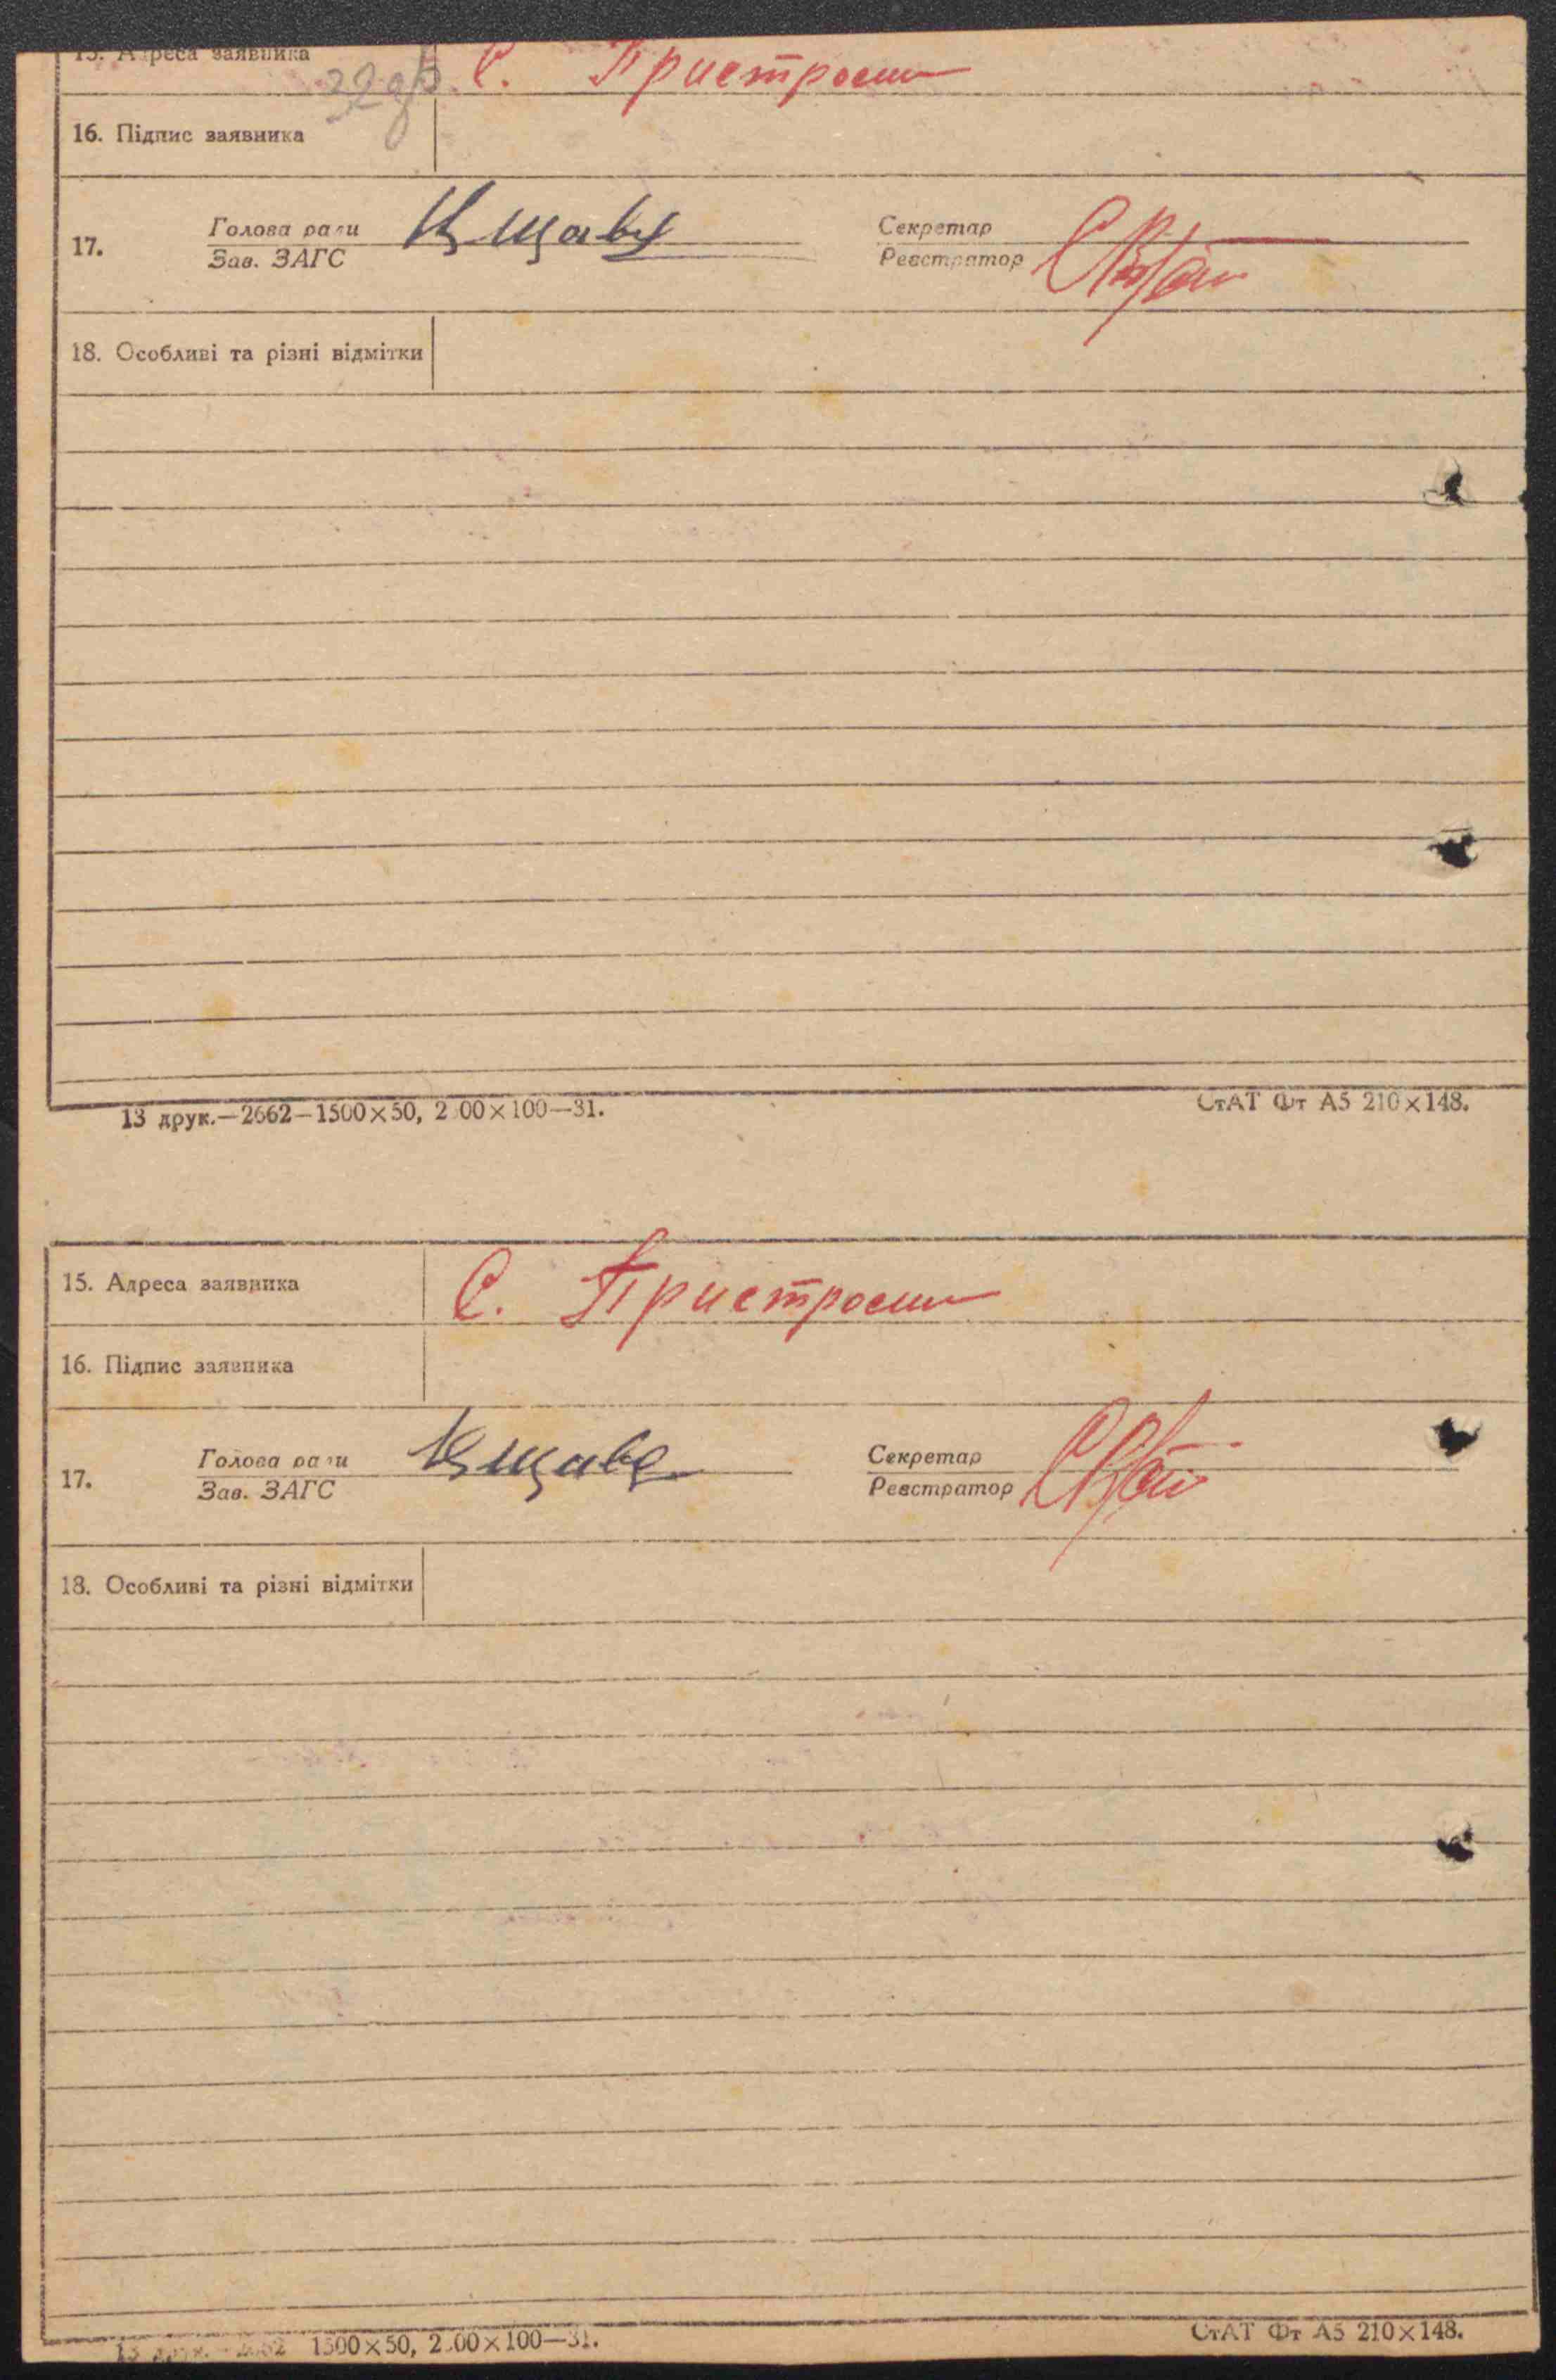 15. Адреса заявника С. Пристроми
16. Підпис заявника
17. Голова ради Секретар
Зав. ЗАГС Реєстратор
18. Особливі та різні відмітки
13 друк.—2662—1500×50, 2 00×100—31. СтАТ Фт А5 210×148.
15. Адреса заявника С. Пристроми
16. Підпис заявника
17. Голова ради Секретар
Зав. ЗАГС Реєстратор
18. Особливі та різні відмітки
1500×50, 2.00×100—31. СтАТ Фт А5 210×148.